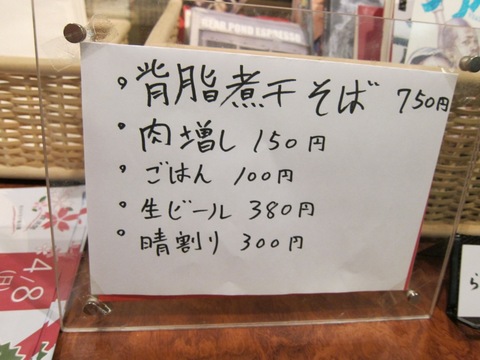 BEAR POND ESPRESSO
背脂煮干そば 750円
肉増し 150円
ごはん 100円
生ビール 380円
晴割り 300円
4/8
(日)
ら